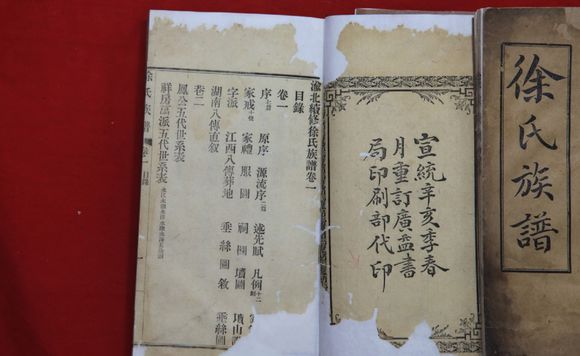 徐氏族譜
宣統辛亥季春
月重訂廣益書
局印刷部代印
渝北續修徐氏族譜卷一
目錄
卷一
序 原序 源流序 述先賦 凡例
家戒 家禮 服圖 祠圖 墳圖 墳山
字派 江西八傳葬地 垂絲圖敘 垂絲圖
湖南八傳直叙
卷二
鳳公五代世系表
祥房富派五代世系表
徐氏族譜 卷一 目錄 一